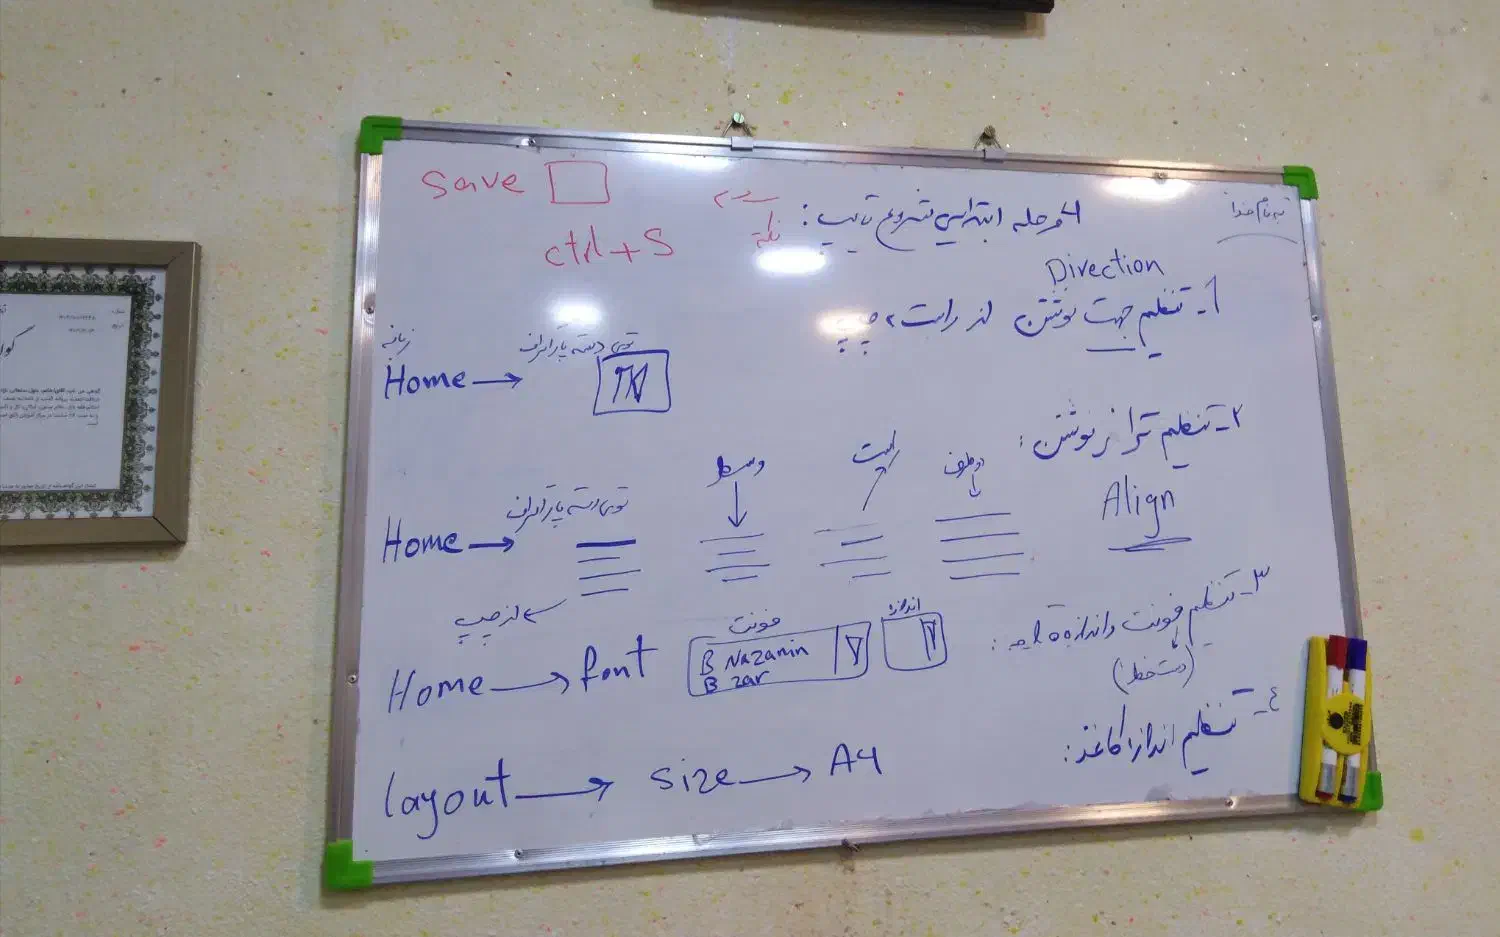 به نام خدا
۴ مرحله ابتدایی شروع تایپ:
نکته
save
ctrl+S
Direction
۱- تنظیم جهت نوشتن از راست به چپ
توی دسته پاراگراف
Home →
۲- تنظیم تراز نوشتن:
Align
دوطرف
راست
وسط
توی دسته پاراگراف
Home →
از چپ
۳- تنظیم فونت و اندازه
(دست خط)
اندازه
فونت
Home → font
B Nazanin
B zar
۴- تنظیم اندازه کاغذ:
layout → size → A4